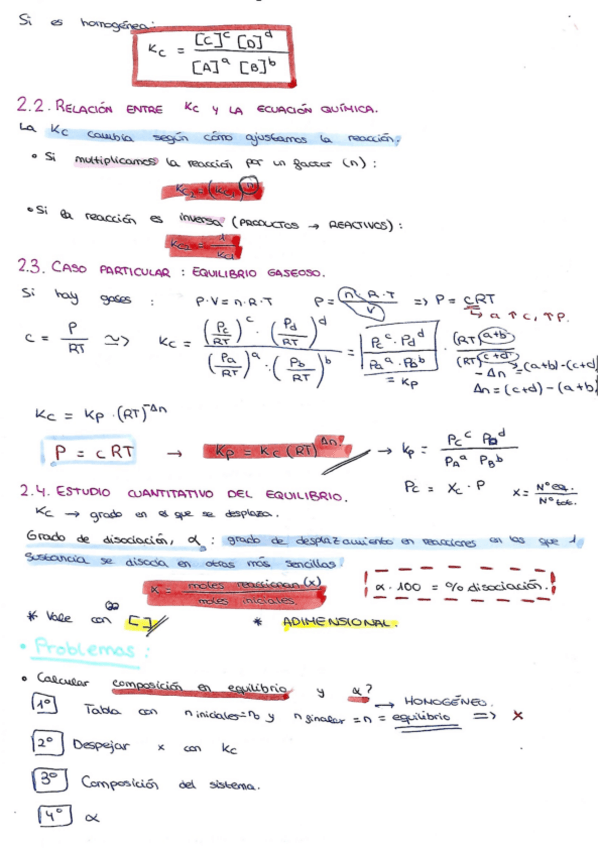 Si es homogénea:
Kc = [C]^c [D]^d / [A]^a [B]^b
2.2. RELACIÓN ENTRE Kc Y LA ECUACIÓN QUÍMICA.
La Kc cambia según cómo ajustamos la reacción.
• Si multiplicamos la reacción por un factor (n):
Kc2 = (Kc1)^n
• Si la reacción es inversa (PRODUCTOS → REACTIVOS):
Kc2 = 1 / Kc1
2.3. CASO PARTICULAR: EQUILIBRIO GASEOSO.
Si hay gases: P·V = n·R·T P = n·R·T / V => P = cRT
→ a ↑c, ↑P.
c = P / RT => Kc = (Pc/RT)^c · (Pd/RT)^d / (Pa/RT)^a · (Pb/RT)^b = Pc^c · Pd^d / Pa^a · Pb^b · (RT)^(a+b) / (RT)^(c+d)
= Kp
-Δn = (a+b)-(c+d)
Δn = (c+d)-(a+b
Kc = Kp · (RT)^-Δn
P = cRT → Kp = Kc (RT)^Δn. → Kp = Pc^c Pd^d / PA^a PB^b
Pc = Xc · P X = Nº eq. / Nº tot.
2.4. ESTUDIO CUANTITATIVO DEL EQUILIBRIO.
Kc → grado en el que se desplaza.
Grado de disociación, α: grado de desplazamiento en reacciones en las que 1
sustancia se disocia en otras más sencillas.
α = moles reaccionan (x) / moles iniciales
α · 100 = % disociación.
* Vale con [ ] * ADIMENSIONAL.
• Problemas:
• Calcular composición en equilibrio y α?
→ HOMOGÉNEO.
1º Tabla con n iniciales = n0 y n finales = n = equilibrio => x
2º Despejar x con Kc
3º Composición del sistema.
4º α